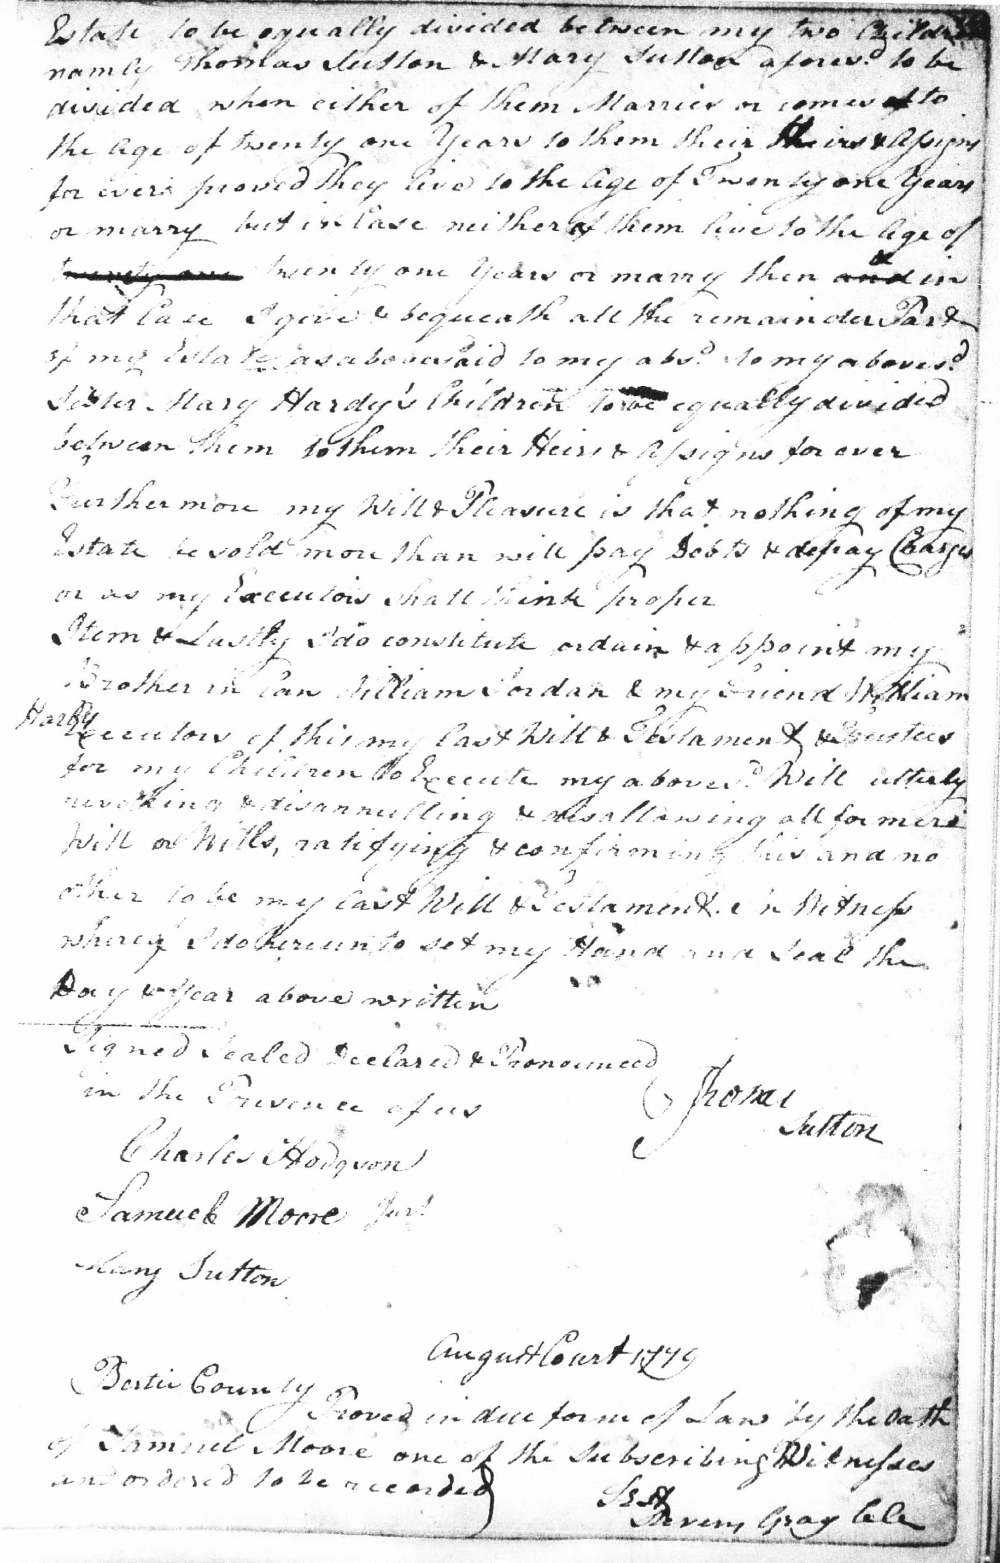 Estate to be equally divided between my two Children
namly Thomas Sutton & Mary Sutton afores.d to be
divided when either of them Marries or comes to
the Age of twenty one Years to them their Heirs & Assigns
for ever proved they live to the Age of Twenty one Years
or marry but in Case neither of them live to the Age of
twenty one twenty one Years or marry then and in
that Case I give & bequeath all the remainder Part
of my Estate as abovesaid to my abs.d to my aboves.d
Sister Mary Hardy's Children to be equally divided
between them to them their Heirs & Assigns for ever
Furthermore my Will & Pleasure is that nothing of my
Estate be sold more than will pay Debts & defray Charges
or as my Executors shall think proper
Item & Lastly I do constitute ordain & appoint my
Brother in Law William Jordan & my Friend William
Hardy
Executors of this my last Will & Testament & Trustees
for my Children to Execute my aboves.d Will utterly
revoking & disannulling & disallowing all former
Will or Wills, ratifying & confirming this and no
other to be my last Will & Testament. In Witness
whereof I do hereunto set my Hand and Seal the
Day & Year above written
Signed Sealed Declared & Pronounced
in the Presence of us
Thomas
Sutton
Charles Hodgson
Samuel Moore Jur.t
Mary Sutton
August Court 1779
Bertie County
Proved in due form of Law by the Oath
of Samuel Moore one of the Subscribing Witnesses
and ordered to be recorded
Test
Stevens Gray Clk